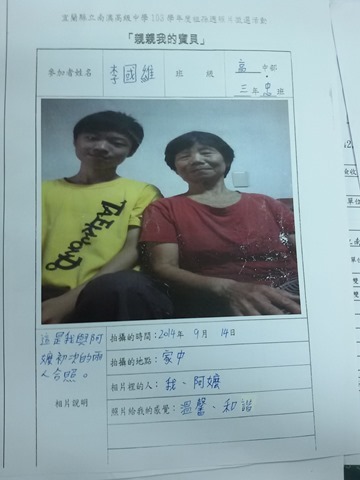 宜蘭縣立南澳高級中學 103 學年度祖孫週照片徵選活動
「親親我的寶貝」
參加者姓名 李國雄 班級 高中部
三年忠班
TAEKWONDO
這是我與阿
嬤初次的兩
人合照。
相片說明
拍攝的時間:2014年 9月 14日
拍攝的地點:家中
相片裡的人:我、阿嬤
照片給我的感覺:溫馨、和諧